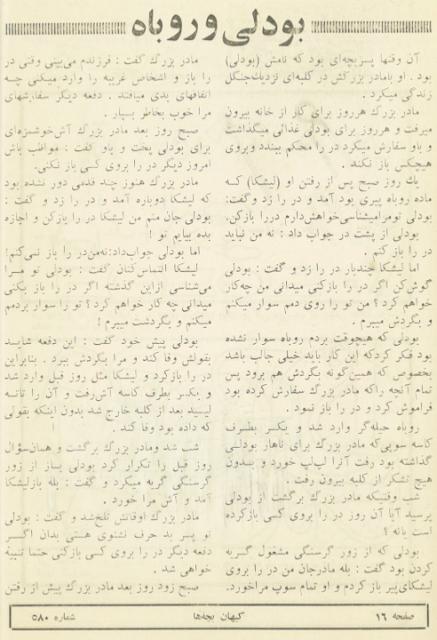 بودلی و روباه
آن وقتها پسربچه‌ای بود که نامش (بودلی)
بود . او بامادر بزرگش در کلبه‌ای نزدیك‌جنگل
زندگی میکرد .
مادر بزرگ هرروز برای کار از خانه بیرون
میرفت و هرروز برای بودلی غذائی میگذاشت
و باو سفارش میکرد در را محکم ببندد وبروی
هیچکس باز نکند .
یك روز صبح پس از رفتن او (لیشکا) که
ماده روباه پیری بود آمد و در را زد و گفت:
بودلی تومرامیشناسی‌خواهش‌دارم دررا بازکن،
بودلی از پشت در جواب داد : نه من نباید
در را باز کنم .
اما لیشکا بخندبار در را زد و گفت : بودلی
گوش‌کن اگر در را بازکنی میدانی من چه‌کار
خواهم کرد ؟ من تو را روی دمم سوار میکنم
و بگردش میبرم .
بودلی که هیچوقت بردم روباه سوار نشده
بود فکر کردکه این کار باید خیلی جالب باشد
بخصوص که همین‌گونه بگردش هم برود پس
تمام آنچه راکه مادر بزرگ سفارش کرده بود
فراموش کرد و در را باز نمود .
روباه حیله‌گر وارد شد و یکسر بطرف
کاسه سوپی‌که مادر بزرگ برای ناهار بودلی
گذاشته بود رفت آنرا لپ‌لپ خورد و بدون
هیچ تشکر از کلبه بیرون رفت .
شب وقتیکه مادر بزرگ برگشت از بودلی
پرسید آیا آن روز در را بروی کسی بازکرده
است یانه ؟
بودلی که از زور گرسنگی مشغول گریه
کردن بود گفت : بله مادرجان من در را بروی
لیشکای‌پیر باز کردم و او تمام سوپ مراخورد.
مادر بزرگ گفت : فرزندم می‌بینی وقتی در
را باز و اشخاص غریبه را وارد میکنی چه
اتفاقهای بدی میافتد . دفعه دیگر سفارشهای
مرا خوب بخاطر بسپار .
صبح روز بعد مادر بزرگ آش‌خوشمزه‌ای
برای بودلی پخت و باو گفت : مواظب باش
امروز دیگر در را بروی کسی باز نکنی.
مادر بزرگ هنوز چند قدمی دور نشده بود
که لیشکا دوباره آمد و در را زد و گفت :
بودلی جان منم من لیشکا در را بازکن و اجازه
بده بیایم تو !
اما بودلی جواب‌داد:نه‌من‌در را باز نمی‌کنم!
لیشکا التماس‌کنان گفت : بودلی تو مرا
می‌شناسی ازاین گذشته اگر در را باز بکنی
میدانی چه کار خواهم کرد ؟ تو را سوار بردمم
میکنم و بگردشت میبرم !
بودلی پیش خود گفت : این دفعه شاید
بقولش وفا کند و مرا بگردش ببرد . بنابراین
در را بازکرد و لیشکا مثل روز قبل وارد شد
و یکسر بطرف کاسه آش‌رفت و آن را تاته
لیسید بعد از کلبه خارج شد بدون اینکه بقولی
که داده بود وفا کند .
شب شد ومادر بزرگ برگشت و همان‌سؤال
روز قبل را تکرار کرد بودلی باز از زور
گرسنگی گریه میکرد و گفت : بله بازلیشکا
آمد و آش مرا خورد .
مادر بزرگ اوقاتش تلخ‌شد و گفت : بودلی
تو پسر بد حرف نشنوی هستی بدان اگر
دفعه دیگر در را بروی کسی بازکنی حتما تنبیه
خواهی شد .
صبح زود روز بعد مادر بزرگ پیش از رفتن
صفحه ۱۶
کیهان بچه‌ها
شماره ۵۸۰